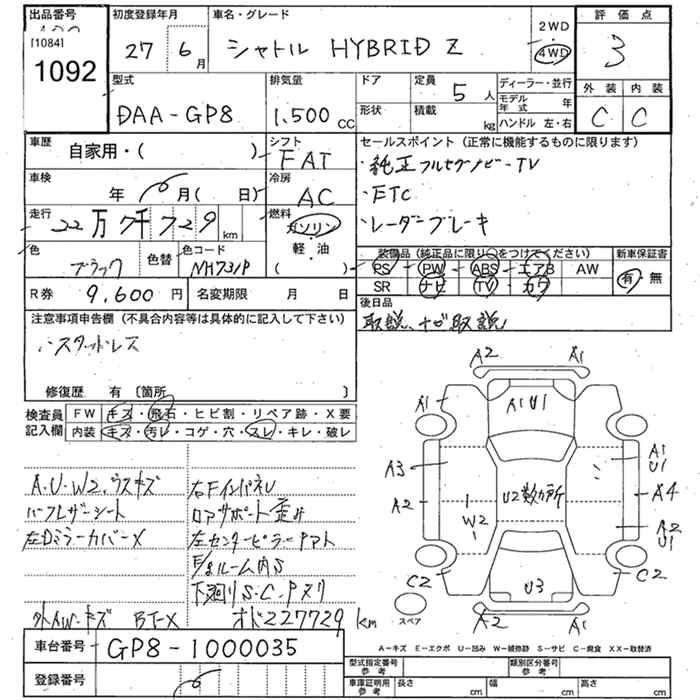 出品番号 初度登録年月 車名・グレード 2WD 評価点
[1084] 1092 27年 6月 シャトル HYBRID Z 4WD 3
型式 排気量 ドア 定員 ディーラー・並行 外装 内装
DAA-GP8 1.500cc 5人 モデル年式 年 C C
形状 積載 kg ハンドル 左・右
車歴 シフト セールスポイント (正常に機能するものに限ります)
自家用・( ) FAT ・純正フルセグナビ-TV
車検 冷房 ・ETC
年 月( 日) AC ・レーダーブレーキ
走行 22万7千729km 燃料 ガソリン・軽・油 ( )
色 ブラック 色替 色コード NH731P
装備品 (純正品に限り○をつけてください) 新車保証書
PS - PW - ABS - エアB AW 有・無
SR ナビ TV カワ
R券 9,600円 名変期限 月 日 後日品
注意事項申告欄 (不具合内容等は具体的に記入して下さい) 取説、ナビ取説
スタッドレス
修復歴 有 〔箇所 〕
検査員 FW キズ・飛石・ヒビ割・リペア跡・X要
記入欄 内装 キズ・汚レ・コゲ・穴・スレ・キレ・破レ
A2 A1
A1 A1U1
A3 A1 U1
A2 U2数カ所 A4
W2 A2 U1
C2 U3 C2
スペア A2 A1
A.U.W2.ウスキズ 右FインパネU
ハーフレザーシート ロアサポート歪み
左Dミラーカバー X 左センターピラー
ルーム内S
下廻りS.C.Pヌリ
外AW-キズ BT-X オド227729km
A-キズ E-エクボ U-凹み W-補修跡 S-サビ C-腐食 XX-取替済
車台番号 GP8-1000035
型式指定番号 参考 類別区分番号 参考
登録番号 車庫証明用 参考 長さ cm 幅 cm 高さ cm